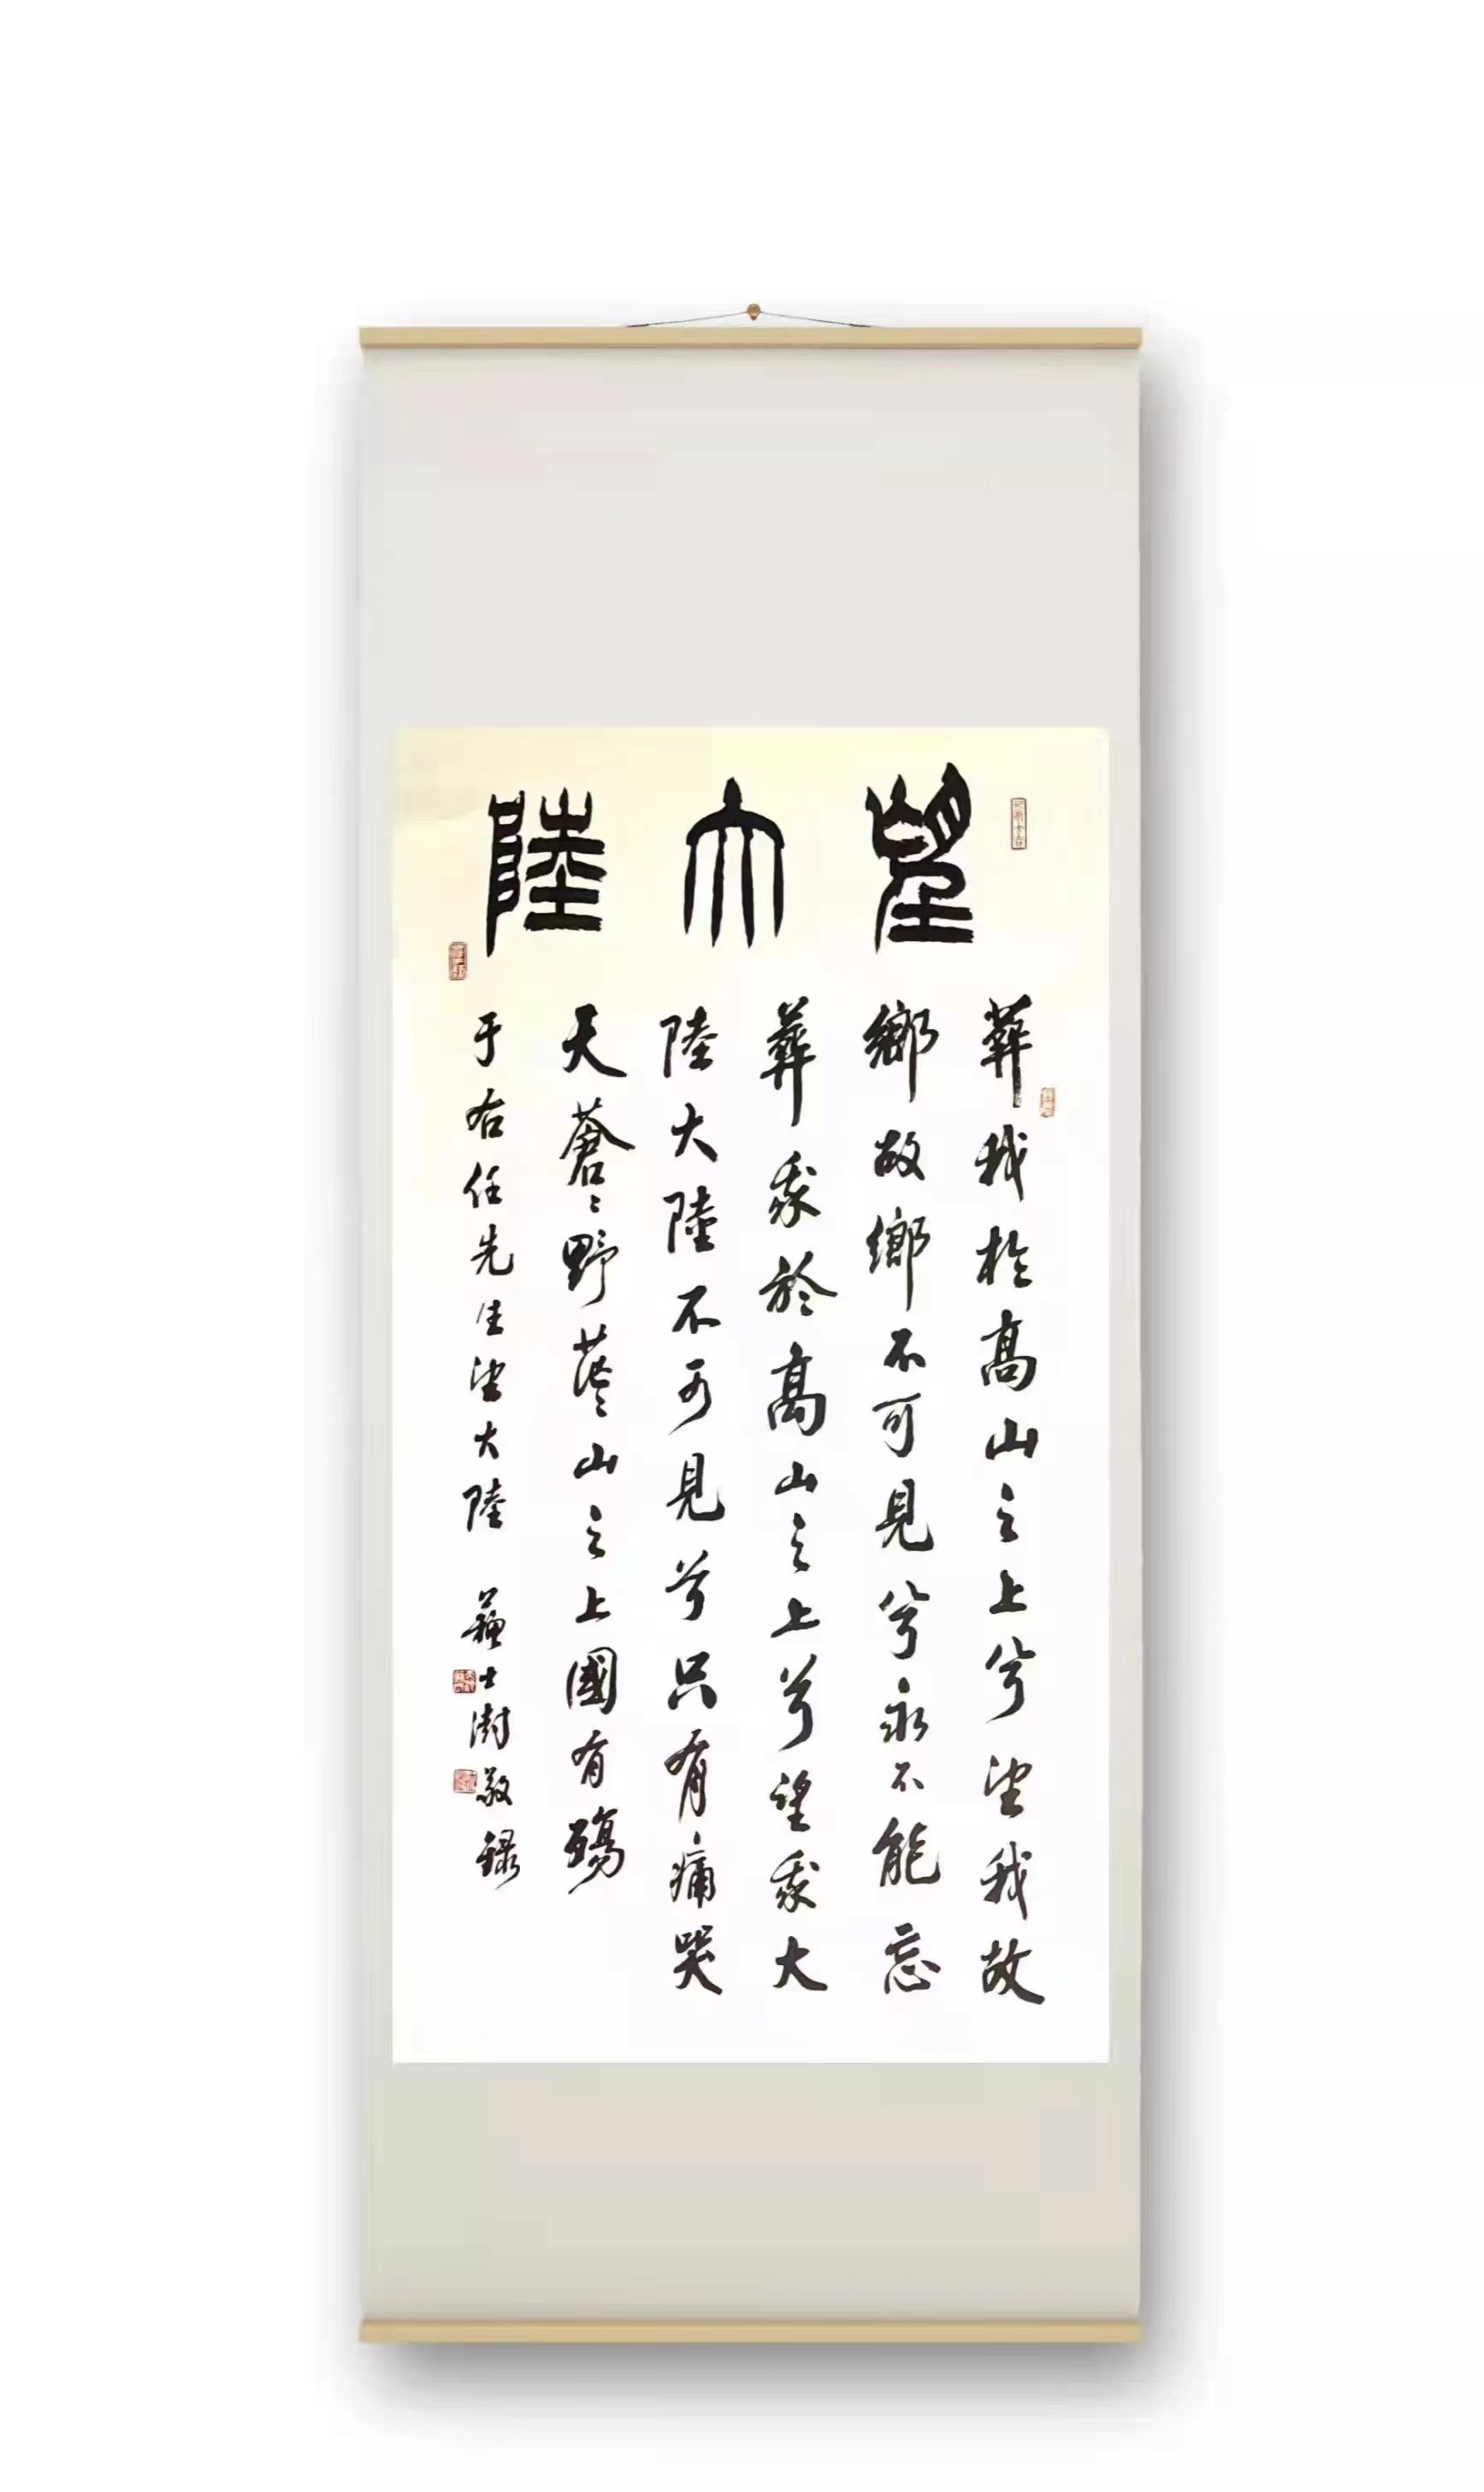 望大陸
葬我於高山之上兮望我故
鄉故鄉不可見兮永不能忘
葬我於高山之上兮望我大
陸大陸不可見兮只有痛哭
天蒼〻野茫〻山之上國有殤
于右任先生望大陸 蘇士澍敬錄